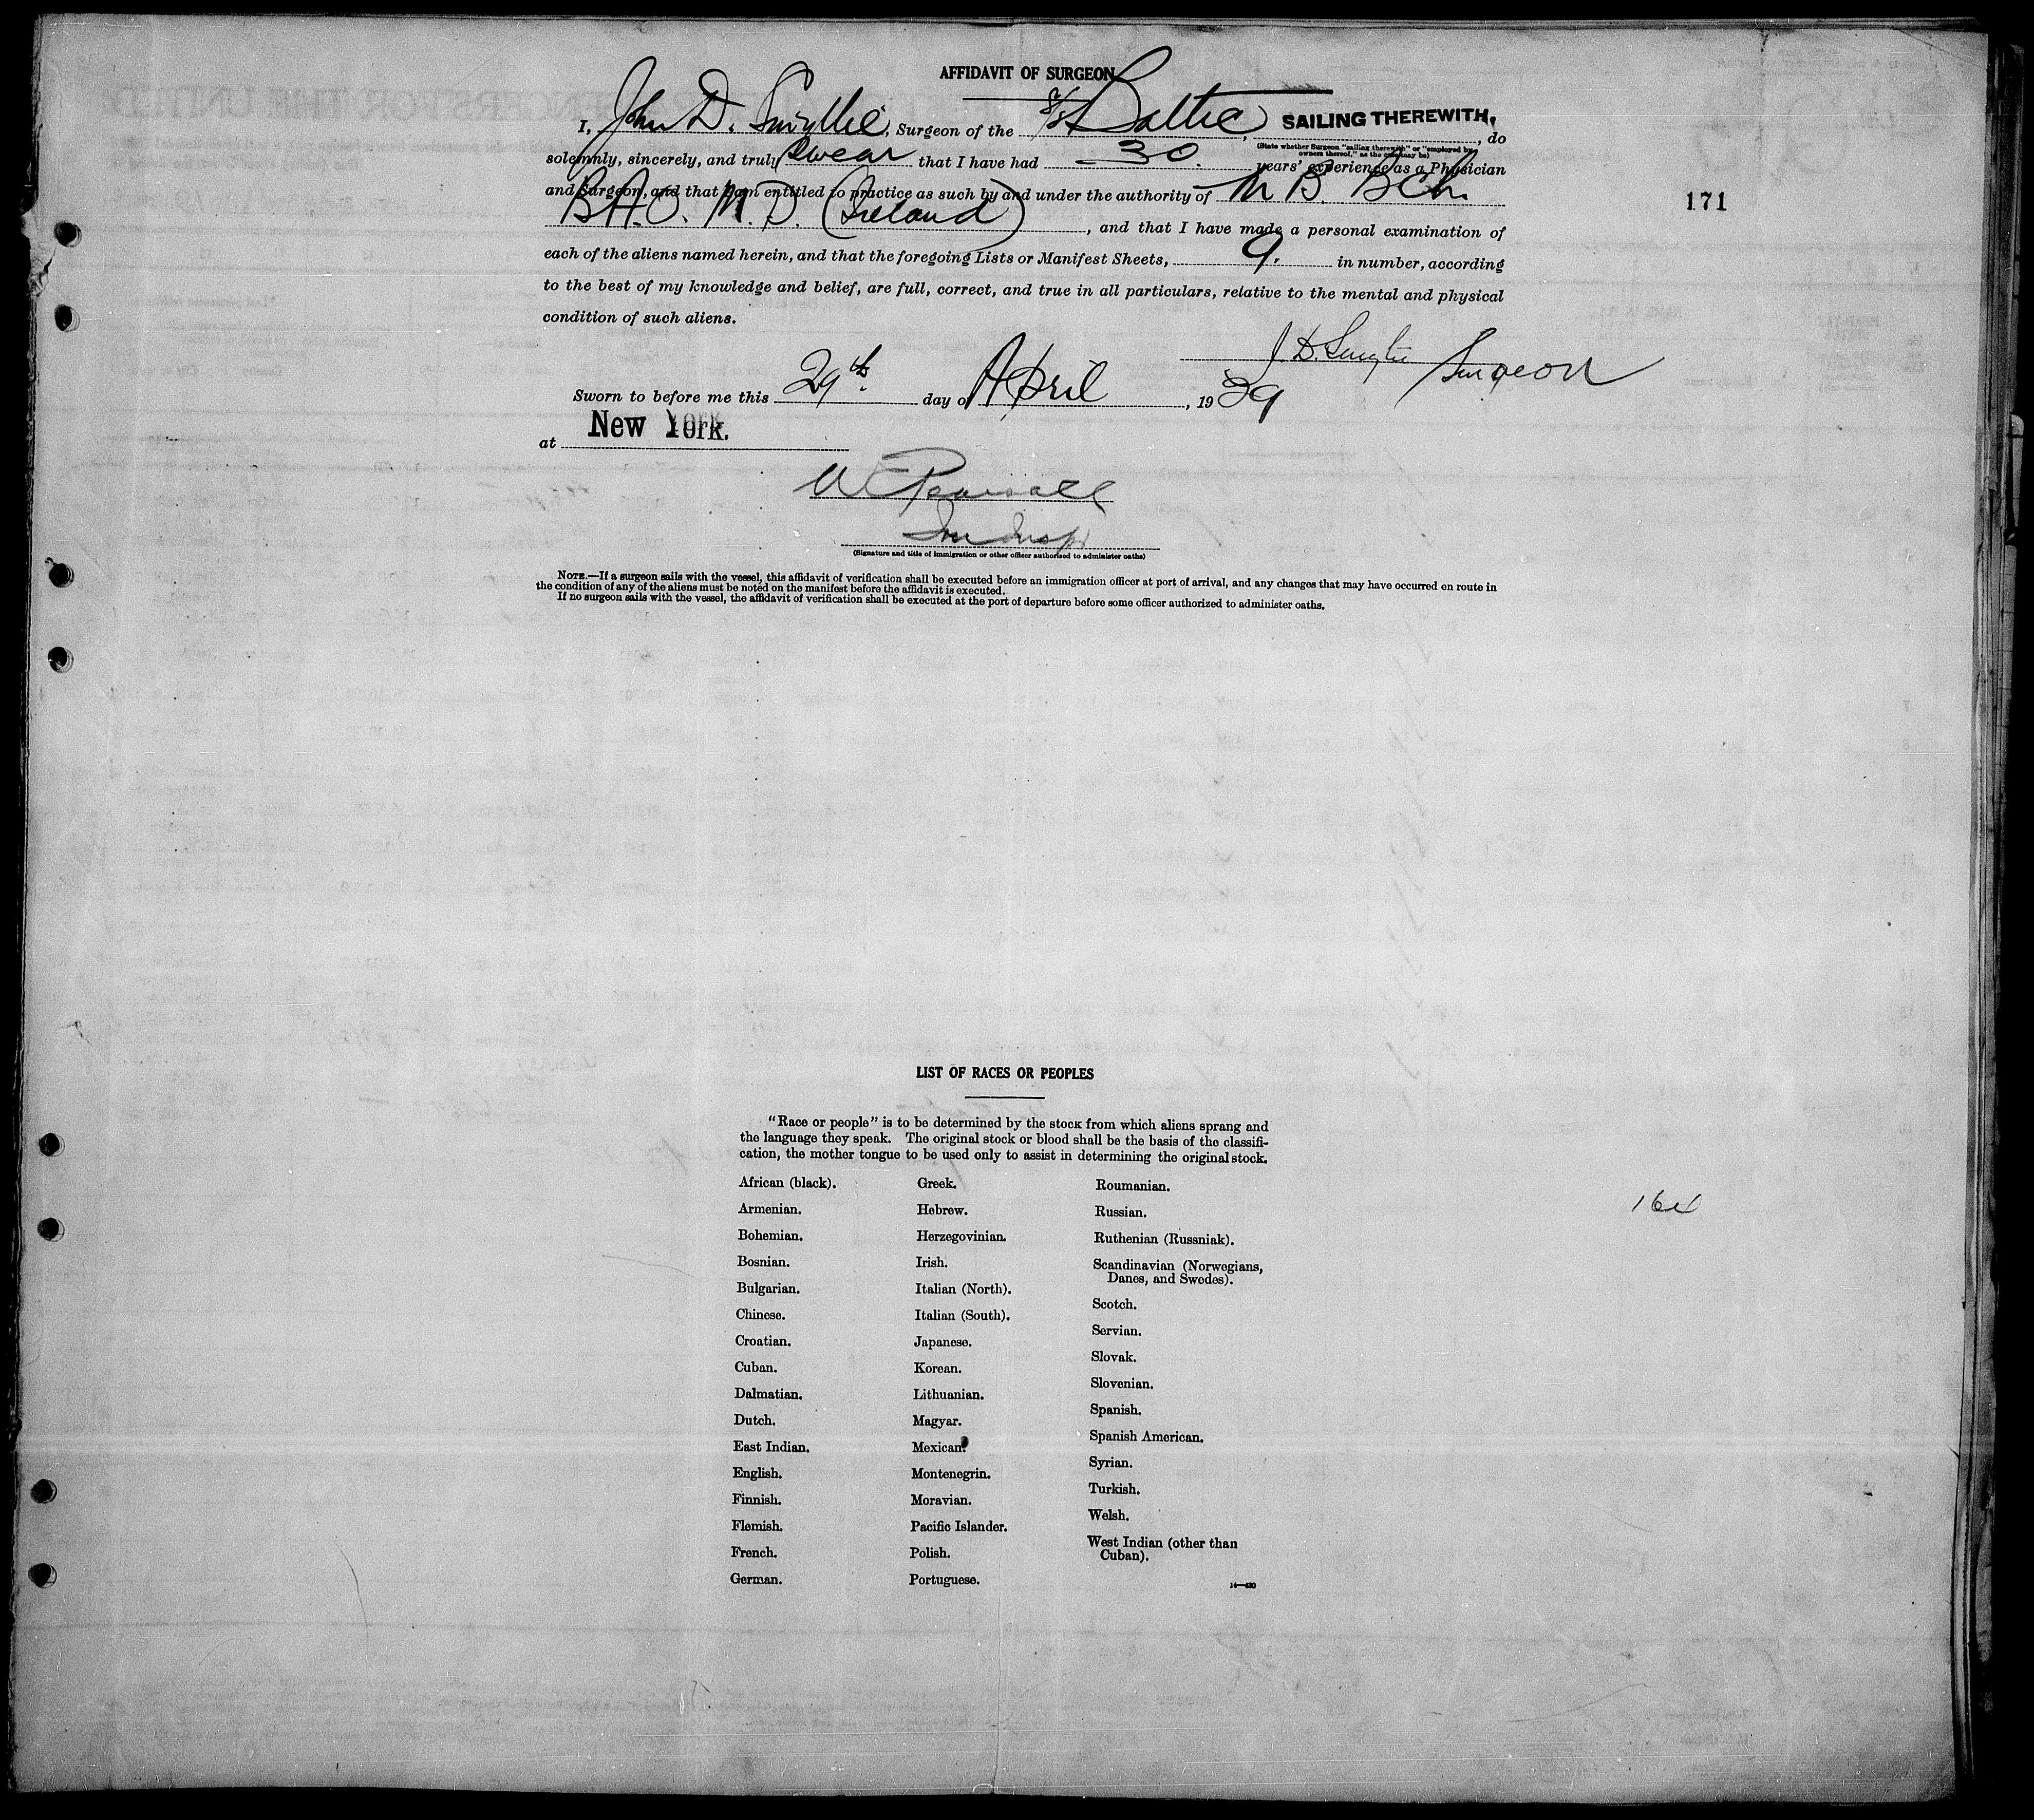 AFFIDAVIT OF SURGEON
I, John D. Smyllie, Surgeon of the S/S Baltic, SAILING THEREWITH, do
(State whether Surgeon "sailing therewith" or "employed by owners thereof," as the case may be)
solemnly, sincerely, and truly swear that I have had 30. years' experience as a Physician
and Surgeon, and that I am entitled to practice as such by and under the authority of M B. B Ch.
B.A.O. M.D. (Ireland), and that I have made a personal examination of
171
each of the aliens named herein, and that the foregoing Lists or Manifest Sheets, 9. in number, according
to the best of my knowledge and belief, are full, correct, and true in all particulars, relative to the mental and physical
condition of such aliens.
J. D. Smyllie Surgeon
Sworn to before me this 29th. day of April, 1929
at New York.
W E Pearsall
Imm Inspr
(Signature and title of immigration or other officer authorized to administer oaths)
NOTE.—If a surgeon sails with the vessel, this affidavit of verification shall be executed before an immigration officer at port of arrival, and any changes that may have occurred en route in
the condition of any of the aliens must be noted on the manifest before the affidavit is executed.
If no surgeon sails with the vessel, the affidavit of verification shall be executed at the port of departure before some officer authorized to administer oaths.
LIST OF RACES OR PEOPLES
"Race or people" is to be determined by the stock from which aliens sprang and
the language they speak. The original stock or blood shall be the basis of the classifi-
cation, the mother tongue to be used only to assist in determining the original stock.
African (black).
Armenian.
Bohemian.
Bosnian.
Bulgarian.
Chinese.
Croatian.
Cuban.
Dalmatian.
Dutch.
East Indian.
English.
Finnish.
Flemish.
French.
German.
Greek.
Hebrew.
Herzegovinian.
Irish.
Italian (North).
Italian (South).
Japanese.
Korean.
Lithuanian.
Magyar.
Mexican.
Montenegrin.
Moravian.
Pacific Islander.
Polish.
Portuguese.
Roumanian.
Russian.
Ruthenian (Russniak).
Scandinavian (Norwegians,
Danes, and Swedes).
Scotch.
Servian.
Slovak.
Slovenian.
Spanish.
Spanish American.
Syrian.
Turkish.
Welsh.
West Indian (other than
Cuban).